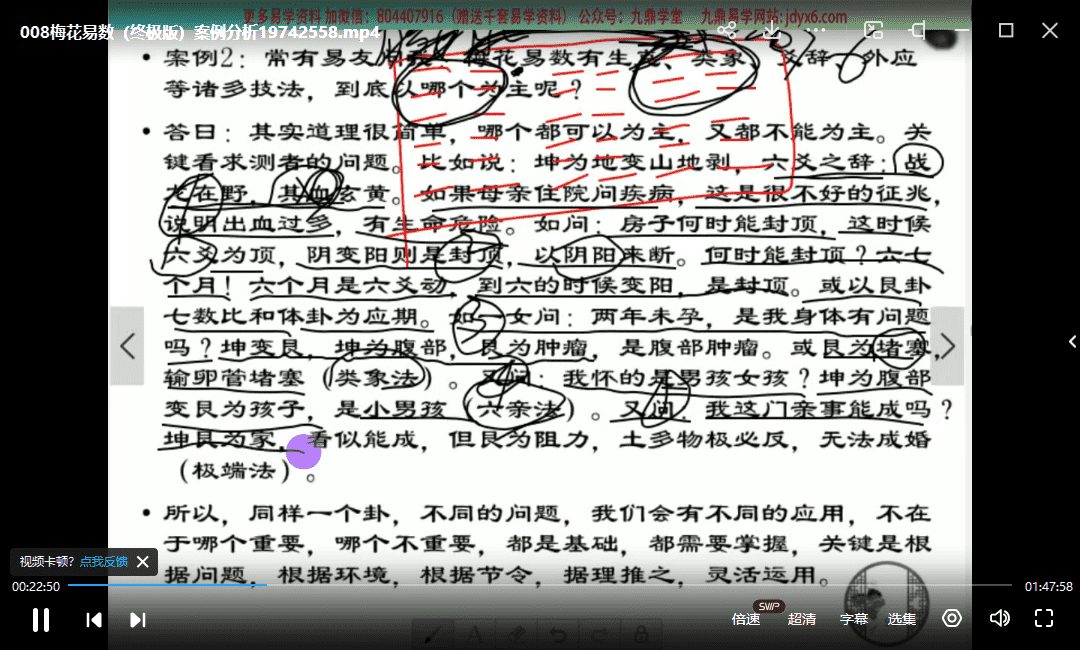 更多易学资料 加微信：804407916（赠送千套易学资料） 公众号：九鼎学堂 九鼎易学网站:jdyx6.com
008梅花易数（终极版）案例分析19742558.mp4
• 案例2：常有易友 梅花易数有生克、类象、爻辞、外应
等诸多技法，到底以哪个为主呢？
• 答曰：其实道理很简单，哪个都可以为主，又都不能为主。关
键看求测者的问题。比如说：坤为地变山地剥，六爻之辞：战
龙在野，其血玄黄。如果母亲住院问疾病，这是很不好的征兆，
说明出血过多，有生命危险。如问：房子何时能封顶，这时候
六爻为顶，阴变阳则是封顶，以阴阳来断。何时能封顶？六七
个月！六个月是六爻动，到六的时候变阳，是封顶。或以艮卦
七数比和体卦为应期。如一女问：两年未孕，是我身体有问题
吗？坤变艮，坤为腹部，艮为肿瘤，是腹部肿瘤。或艮为堵塞，
输卵管堵塞（类象法）。又问：我怀的是男孩女孩？坤为腹部
变艮为孩子，是小男孩（六亲法）。又问，我这门亲事能成吗？
坤艮为家，看似能成，但艮为阻力，土多物极必反，无法成婚
（极端法）。
• 所以，同样一个卦，不同的问题，我们会有不同的应用，不在
于哪个重要，哪个不重要，都是基础，都需要掌握，关键是根
据问题，根据环境，根据节令，据理推之，灵活运用。
视频卡顿？点我反馈
00:22:50
01:47:58
倍速
SVIP
超清
字幕
选集